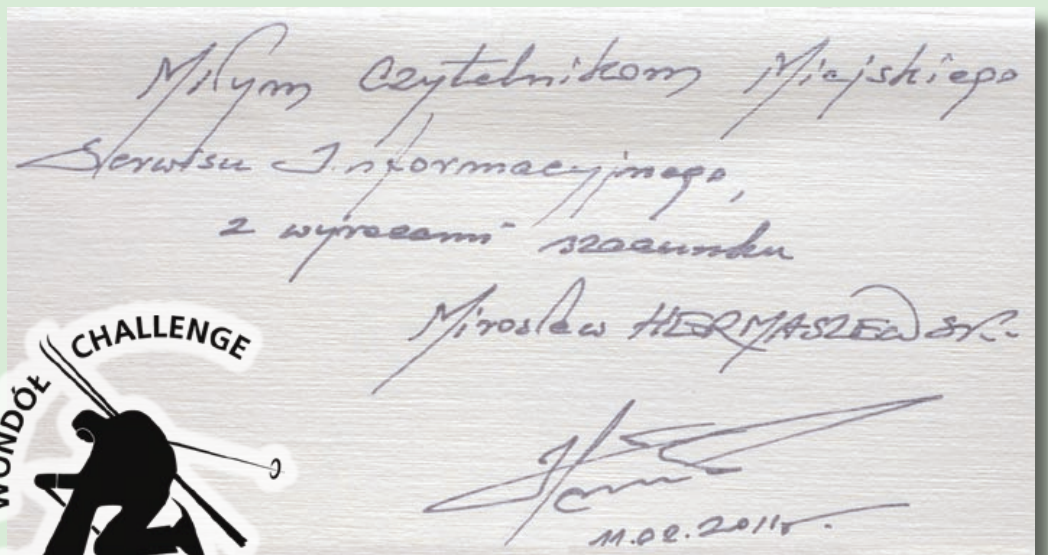 Miłym Czytelnikom Miejskiego
Serwisu Informacyjnego,
z wyrazami szacunku
Mirosław HERMASZEWSKI
11.02.2011r.
CHALLENGE
WONDÓŁ